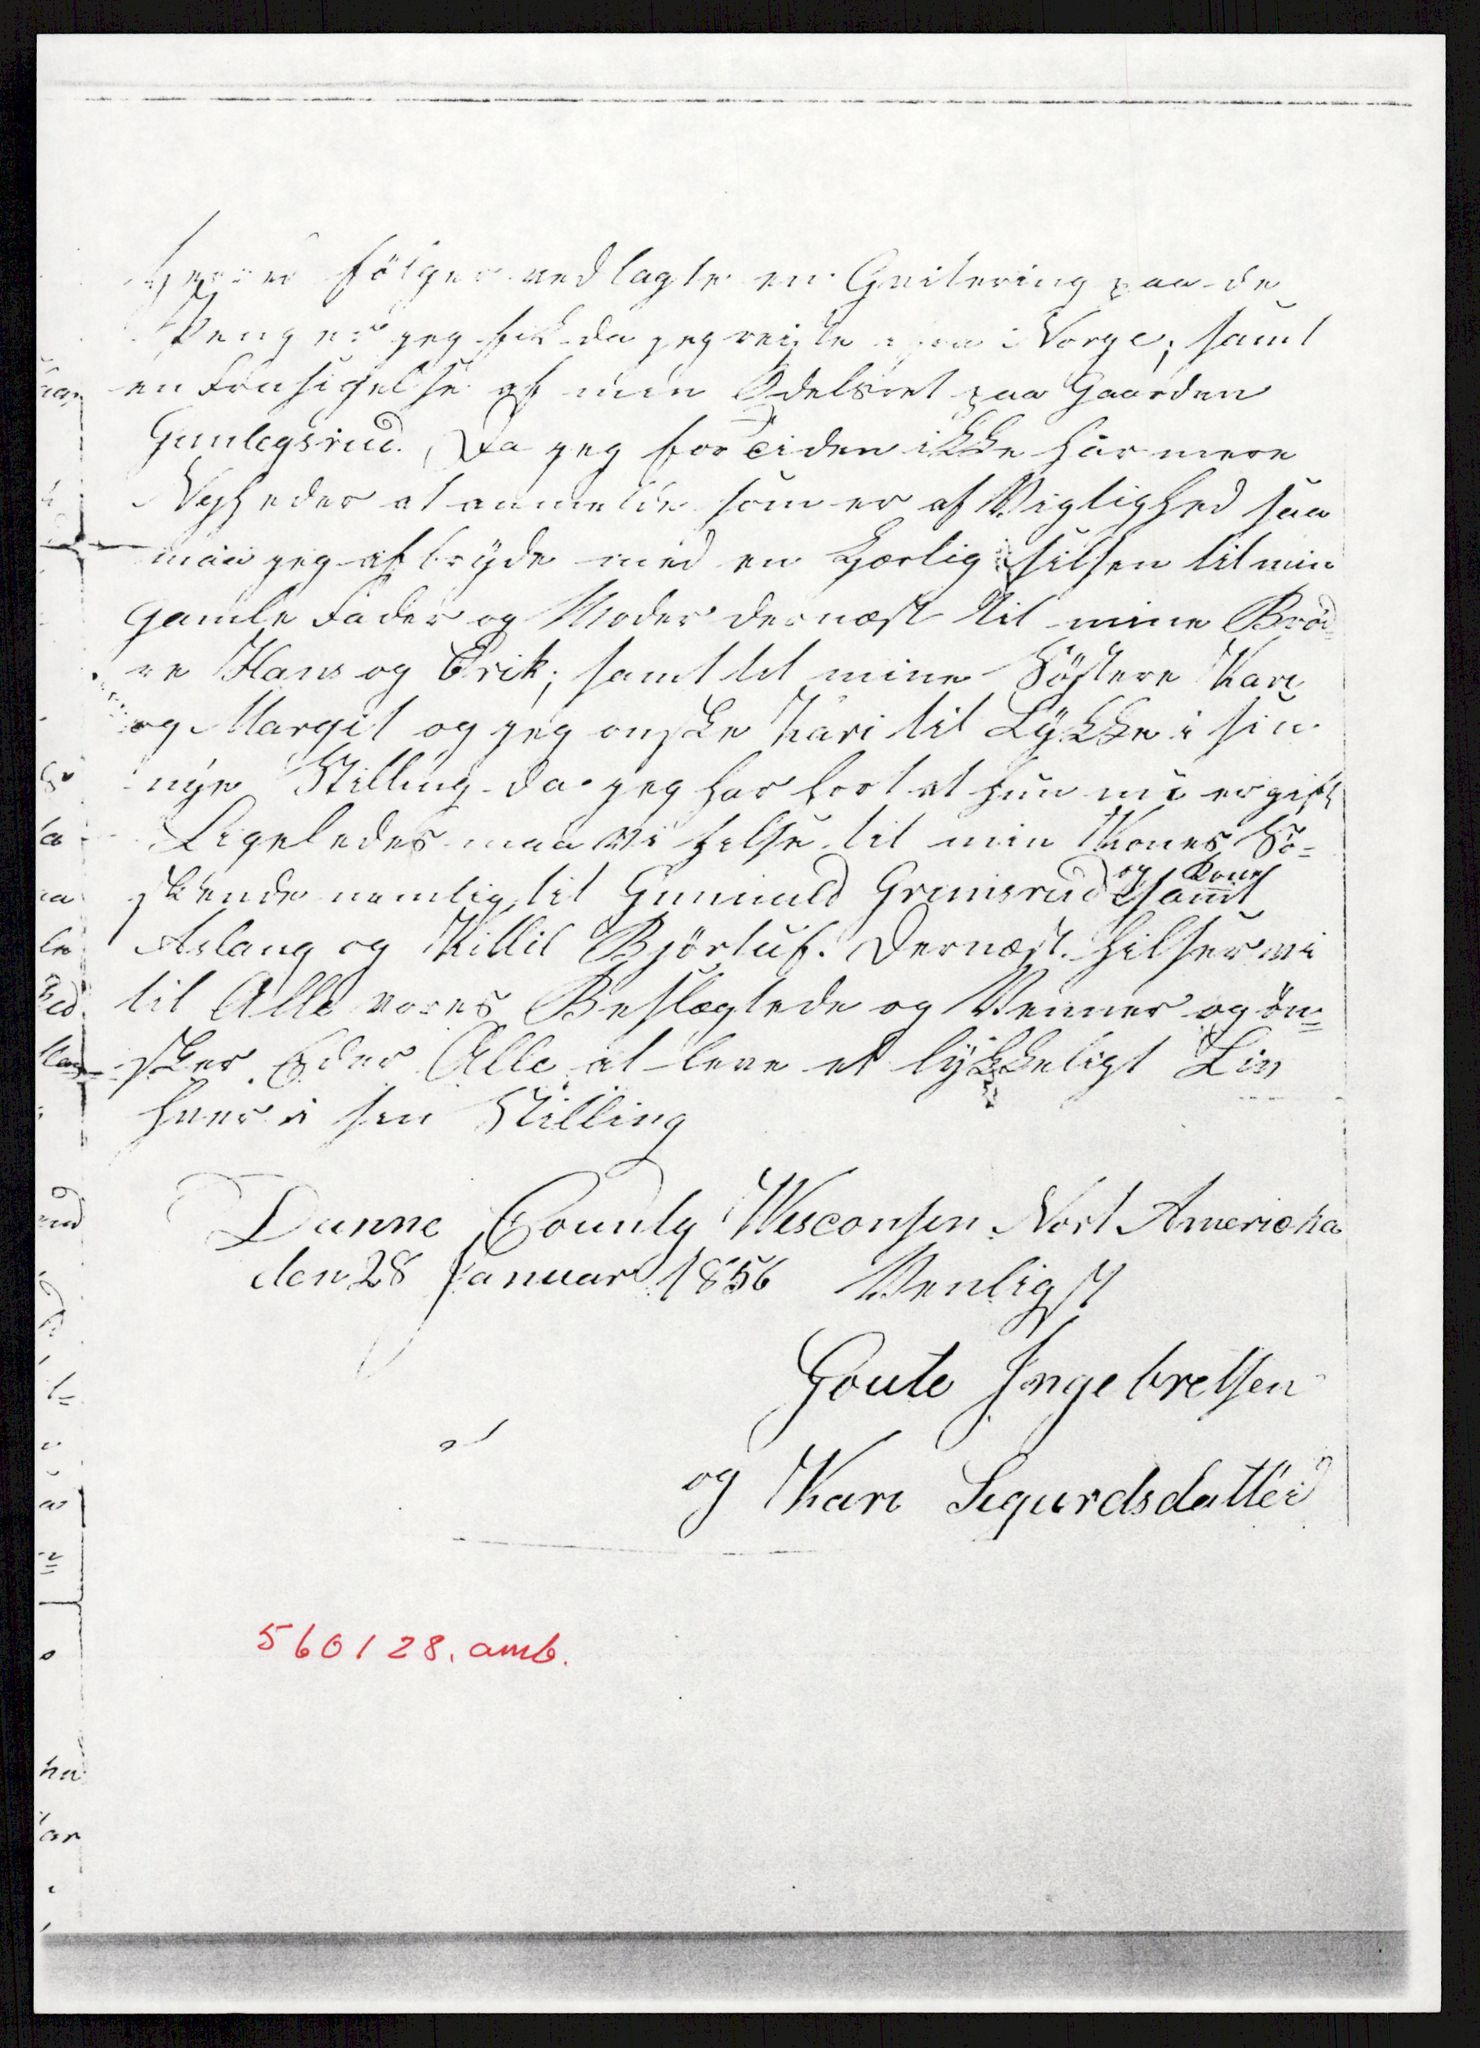 følger vedlagte en Qvitering paa de
Penger jeg fik da jeg reiste ifra Norge; samt
en Frasigelse af min Odelsret paa Gaarden
Gunlegsrud. Da jeg for Tiden ikke har mere
Nyheder at anmelde som er af Vigtighed saa
maa jeg afbryde med en kjærlig hilsen til min
gamle Fader og Moder dernæst til mine Brød=
re Hans og Erik; samt til mine Søstere Kari
og Margit og jeg onske Kari til Lykke i sin
nye Stilling da jeg har hort at hun nu er gift
Ligeledes maa vi helse til min Kones Sø=
skende nemlig til Gunnuld Grimsrud og Kone samt
Aslaug og Killil Bjørtuf. Dernæst hilser vi
til Alle vores Beslægtede og Venner og øn=
sker Eder Alle at leve et lykkeligt Liv
hver i sin Stilling
Danne County Wisconsin Nort Americka
den 28 Januar 1856 Venligst
Goute Ingebretsen
og Kari Sigurdsdatter
560128. amb.